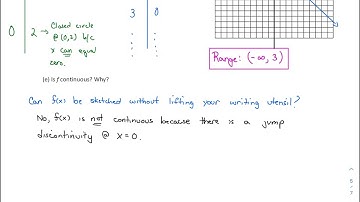 3 0
0 2 → Closed circle
@ (0,2) b/c
x can equal
zero.
Range: (-∞, 3)
(e) Is f continuous? Why?
Can f(x) be sketched without lifting your writing utensil?
No, f(x) is not continuous because there is a jump
discontinuity @ x=0.